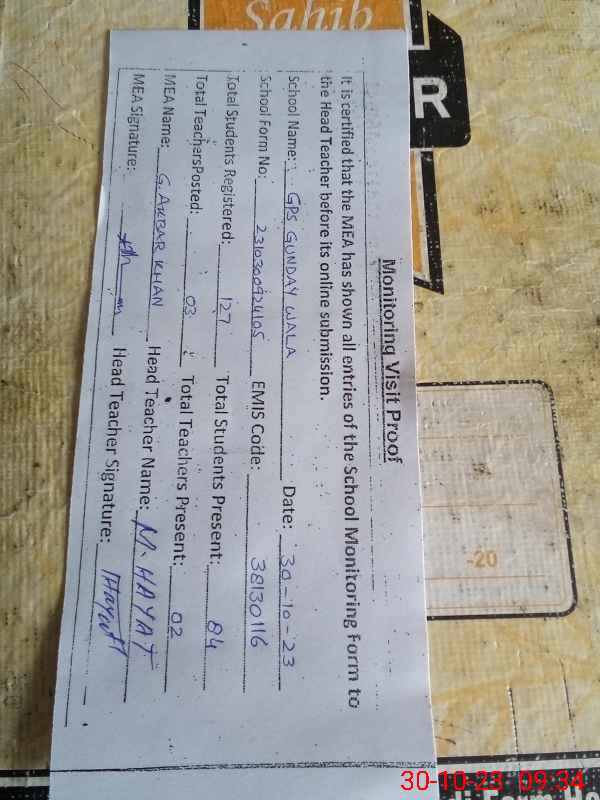 Monitoring Visit Proof
It is certified that the MEA has shown all entries of the School Monitoring Form to
the Head Teacher before its online submission.
School Name: GPS GUNDAY WALA Date: 30-10-23
School Form No: 2310300924105 EMIS Code: 38130116
Total Students Registered: 127 Total Students Present: 84
Total TeachersPosted: 03 Total Teachers Present: 02
MEA Name: G. AKBAR KHAN Head Teacher Name: M. HAYAT
MEA Signature: Head Teacher Signature: Hayat
Sahib
R
-20
30-10-23 09:34